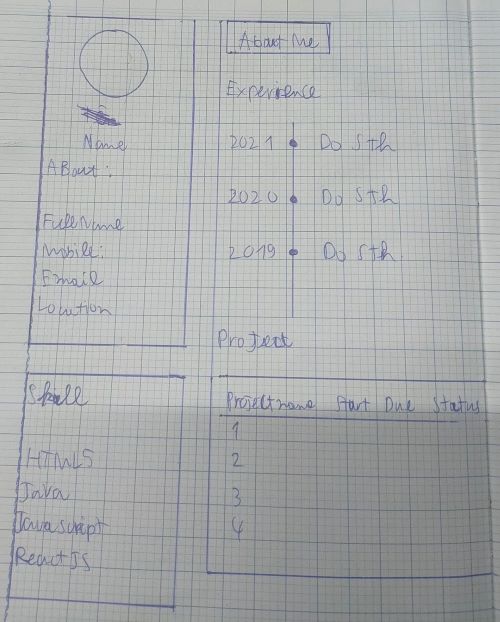 Name
About:
Full Name
Mobile:
Email
Location
Skill
HTML5
Java
Javascript
ReactJS
About Me
Experience
2021 Do Sth
2020 Do Sth
2019 Do Sth
Project
Project name Start Due Status
1
2
3
4